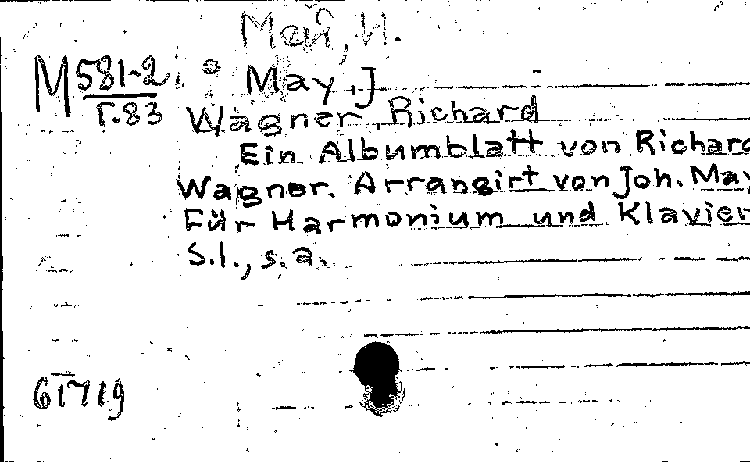 Май, И.
М 581-2
Г.83
May, J
Wagner, Richard
Ein Albumblatt von Richard
Wagner. Arrangirt von Joh. May
Für Harmonium und Klavier
S.l., s.a.